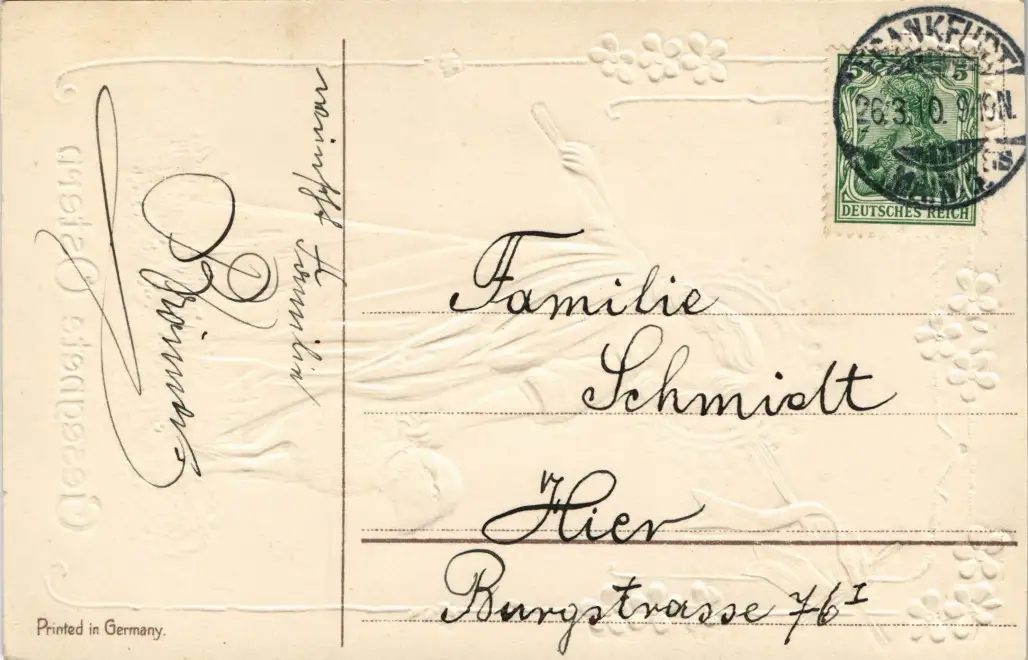 wünscht Familie
Familie
Schmidt
Hier
Burgstrasse 76 I
5 5
DEUTSCHES REICH
FRANKFURT
26.3.10. 9-10N.
MAIN
Gesegnete Ostern
Printed in Germany.